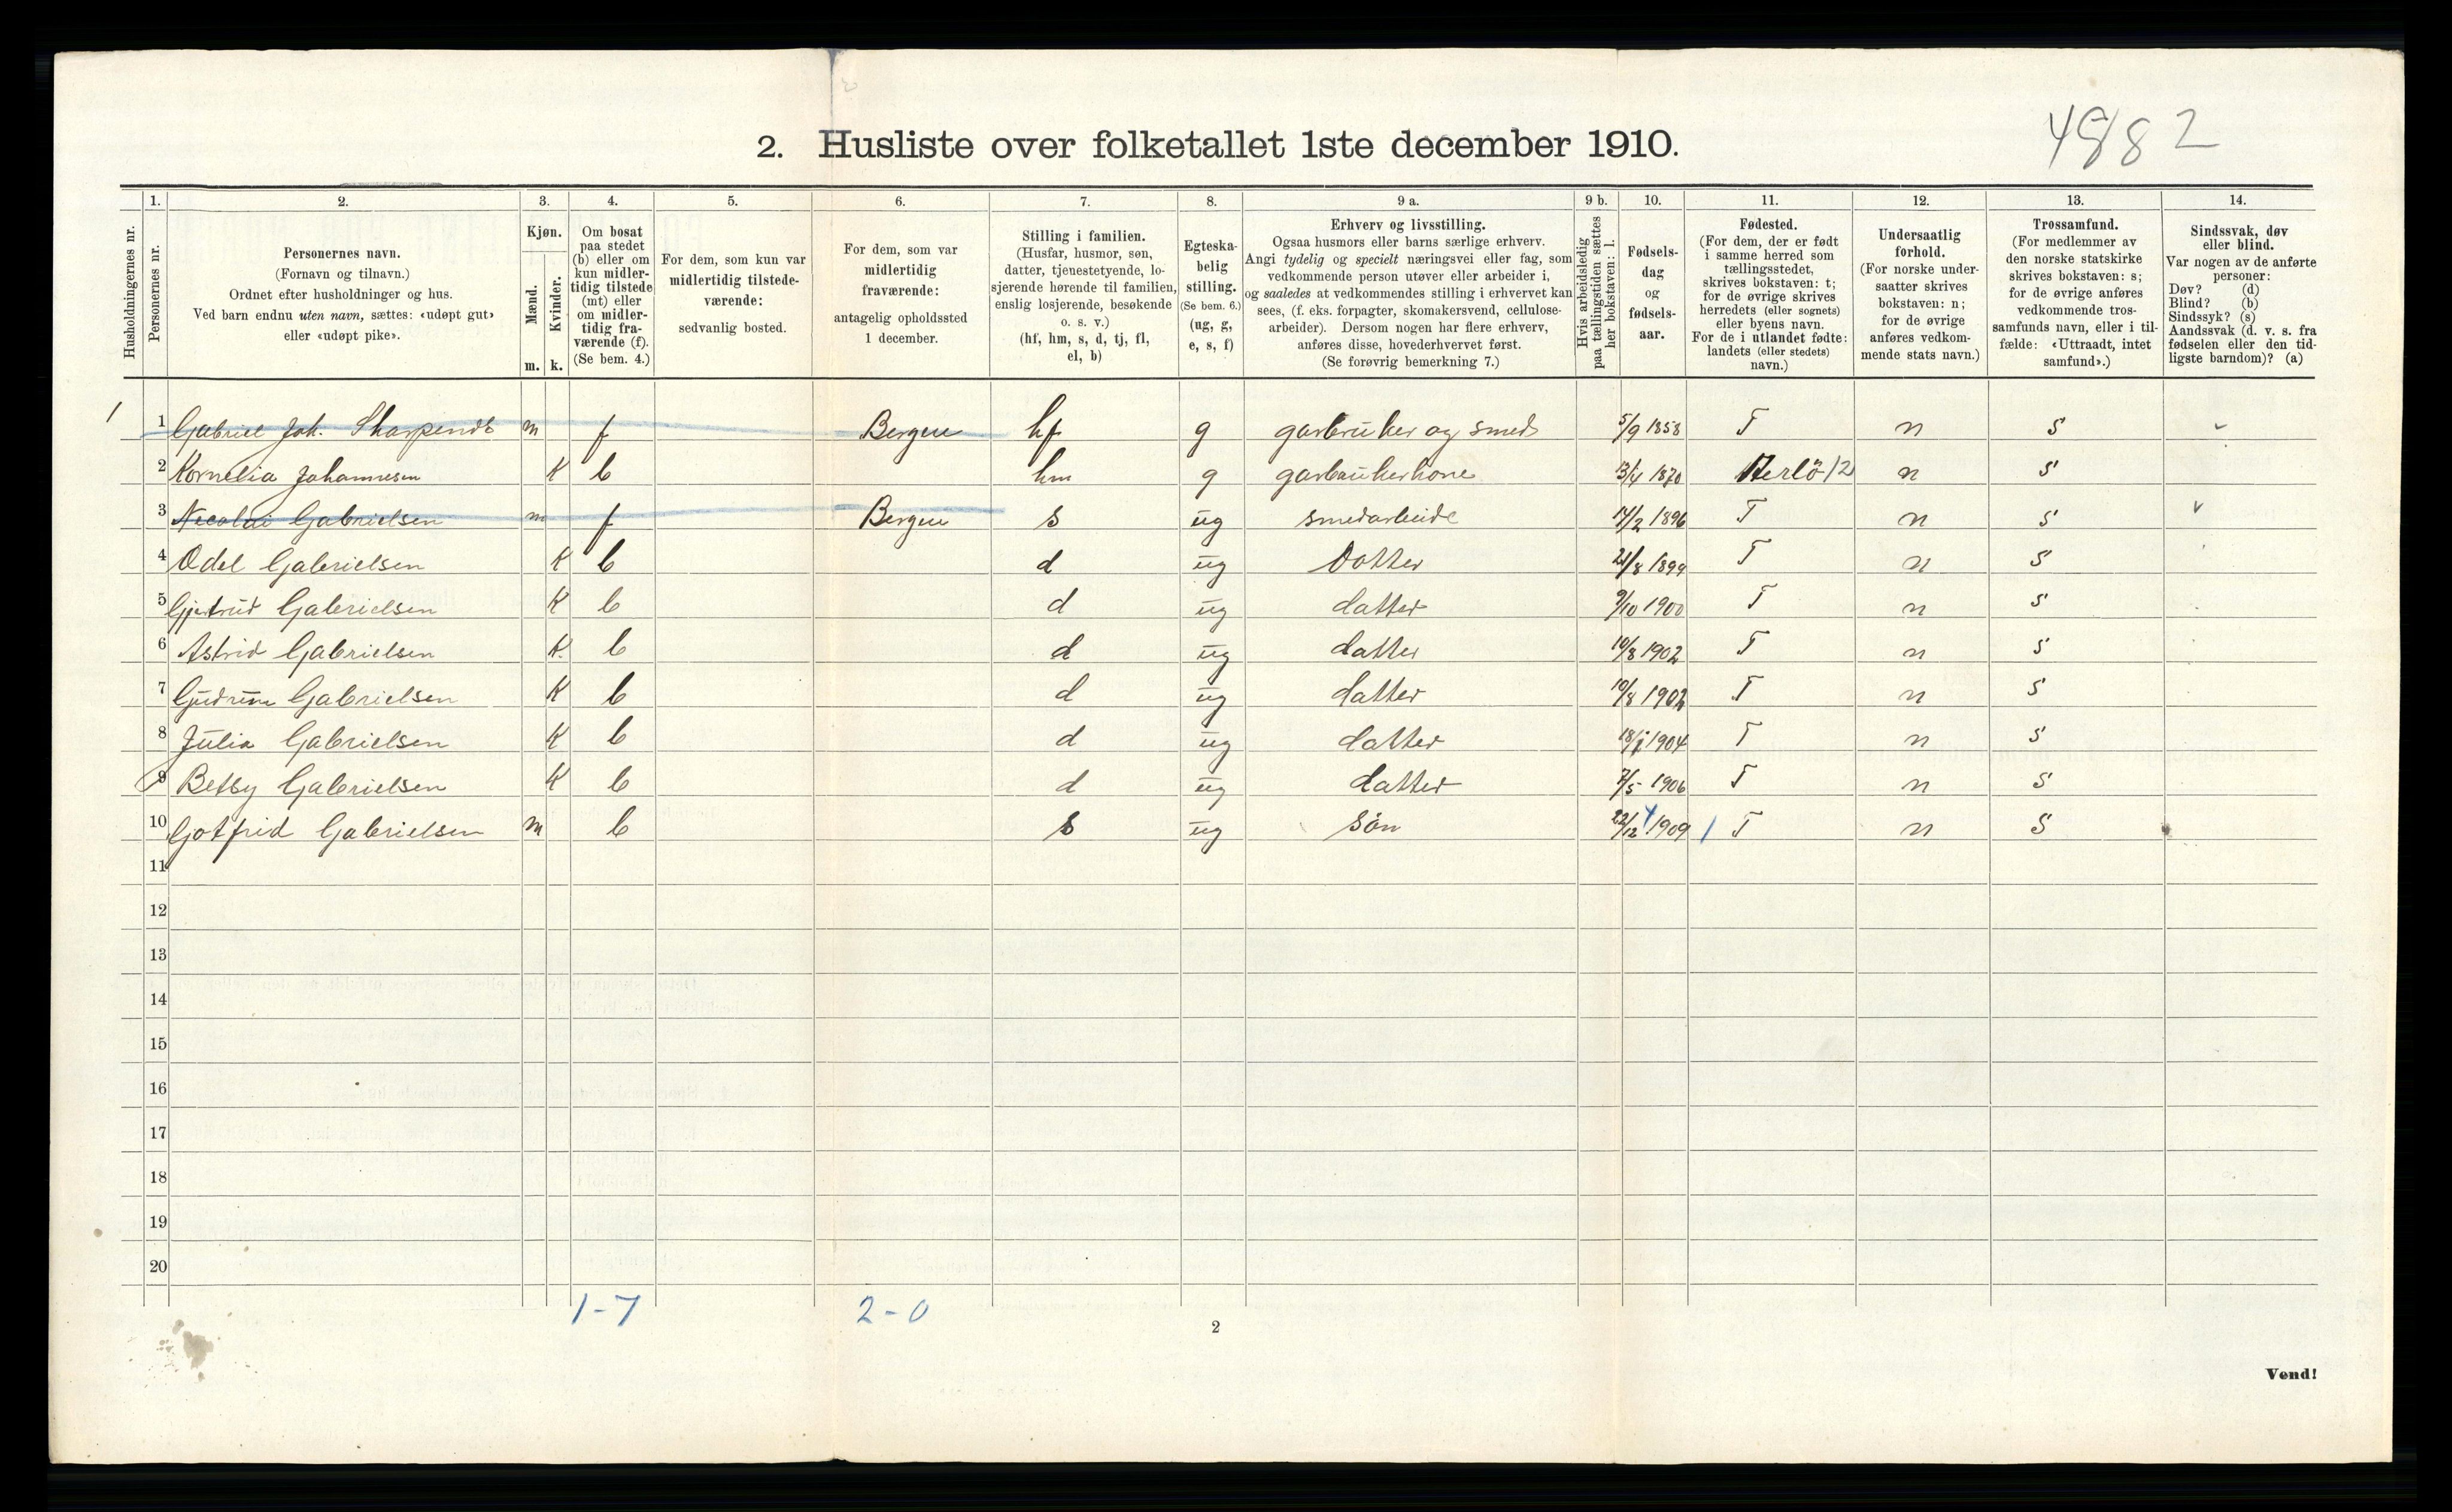 4882
2. Husliste over folketallet 1ste december 1910.
Husholdningernes nr.
1.
Personernes nr.
2.
Personernes navn.
(Fornavn og tilnavn.)
Ordnet efter husholdninger og hus.
Ved barn endnu uten navn, sættes: «udøpt gut»
eller «udøpt pike».
3.
Kjøn.
Mænd.
Kvinder.
m. k.
4.
Om bosat
paa stedet
(b) eller om
kun midler-
tidig tilstede
(mt) eller
om midler-
tidig fra-
værende (f).
(Se bem. 4.)
5.
For dem, som kun var
midlertidig tilstede-
værende:
sedvanlig bosted.
6.
For dem, som var
midlertidig
fraværende:
antagelig opholdssted
1 december.
7.
Stilling i familien.
(Husfar, husmor, søn,
datter, tjenestetyende, lo-
sjerende hørende til familien,
enslig losjerende, besøkende
o. s. v.)
(hf, hm, s, d, tj, fl,
el, b)
8.
Egteska-
belig
stilling.
(Se bem. 6.)
(ug, g,
e, s, f)
9 a.
Erhverv og livsstilling.
Ogsaa husmors eller barns særlige erhverv.
Angi tydelig og specielt næringsvei eller fag, som
vedkommende person utøver eller arbeider i,
og saaledes at vedkommendes stilling i erhvervet kan
sees, (f. eks. forpagter, skomakersvend, cellulose-
arbeider). Dersom nogen har flere erhverv,
anføres disse, hovederhvervet først.
(Se forøvrig bemerkning 7.)
9 b.
Hvis arbeidsledig
paa tællingstiden sættes
her bokstaven: l.
10.
Fødsels-
dag
og
fødsels-
aar.
11.
Fødested.
(For dem, der er født
i samme herred som
tællingsstedet,
skrives bokstaven: t;
for de øvrige skrives
herredets (eller sognets)
eller byens navn.
For de i utlandet fødte:
landets (eller stedets)
navn.)
12.
Undersaatlig
forhold.
(For norske under-
saatter skrives
bokstaven: n;
for de øvrige
anføres vedkom-
mende stats navn.)
13.
Trossamfund.
(For medlemmer av
den norske statskirke
skrives bokstaven: s;
for de øvrige anføres
vedkommende tros-
samfunds navn, eller i til-
fælde: «Uttraadt, intet
samfund».)
14.
Sindssvak, døv
eller blind.
Var nogen av de anførte
personer:
Døv? (d)
Blind? (b)
Sindssyk? (s)
Aandssvak (d. v. s. fra
fødselen eller den tid-
ligste barndom)? (a)
1 1 Gabriel Joh. m f Bergen hf g garbruker og smed 5/9 1858 T n s
2 Kornelia Johannesen K b hm g garbrukerkone 13/4 1870 Herlö 12 n s
3 Nicolai Gabrielsen m f Bergen s ug smedarbeide 14/2 1896 T n s
4 Odel Gabrielsen K b d ug Datter 21/8 1899 T n s
5 Gjertrud Gabrielsen K b d ug datter 9/10 1900 T n s
6 Astrid Gabrielsen K b d ug datter 10/8 1902 T n s
7 Gudrun Gabrielsen K b d ug datter 10/8 1902 T n s
8 Julia Gabrielsen K b d ug datter 1904 T n s
9 Betsy Gabrielsen K b d ug datter 7/5 1906 T n s
10 Gotfrid Gabrielsen m b s ug Sön 22/12 1909 T n s
11
12
13
14
15
16
17
18
19
20
1-7 2-0
2
Vend!